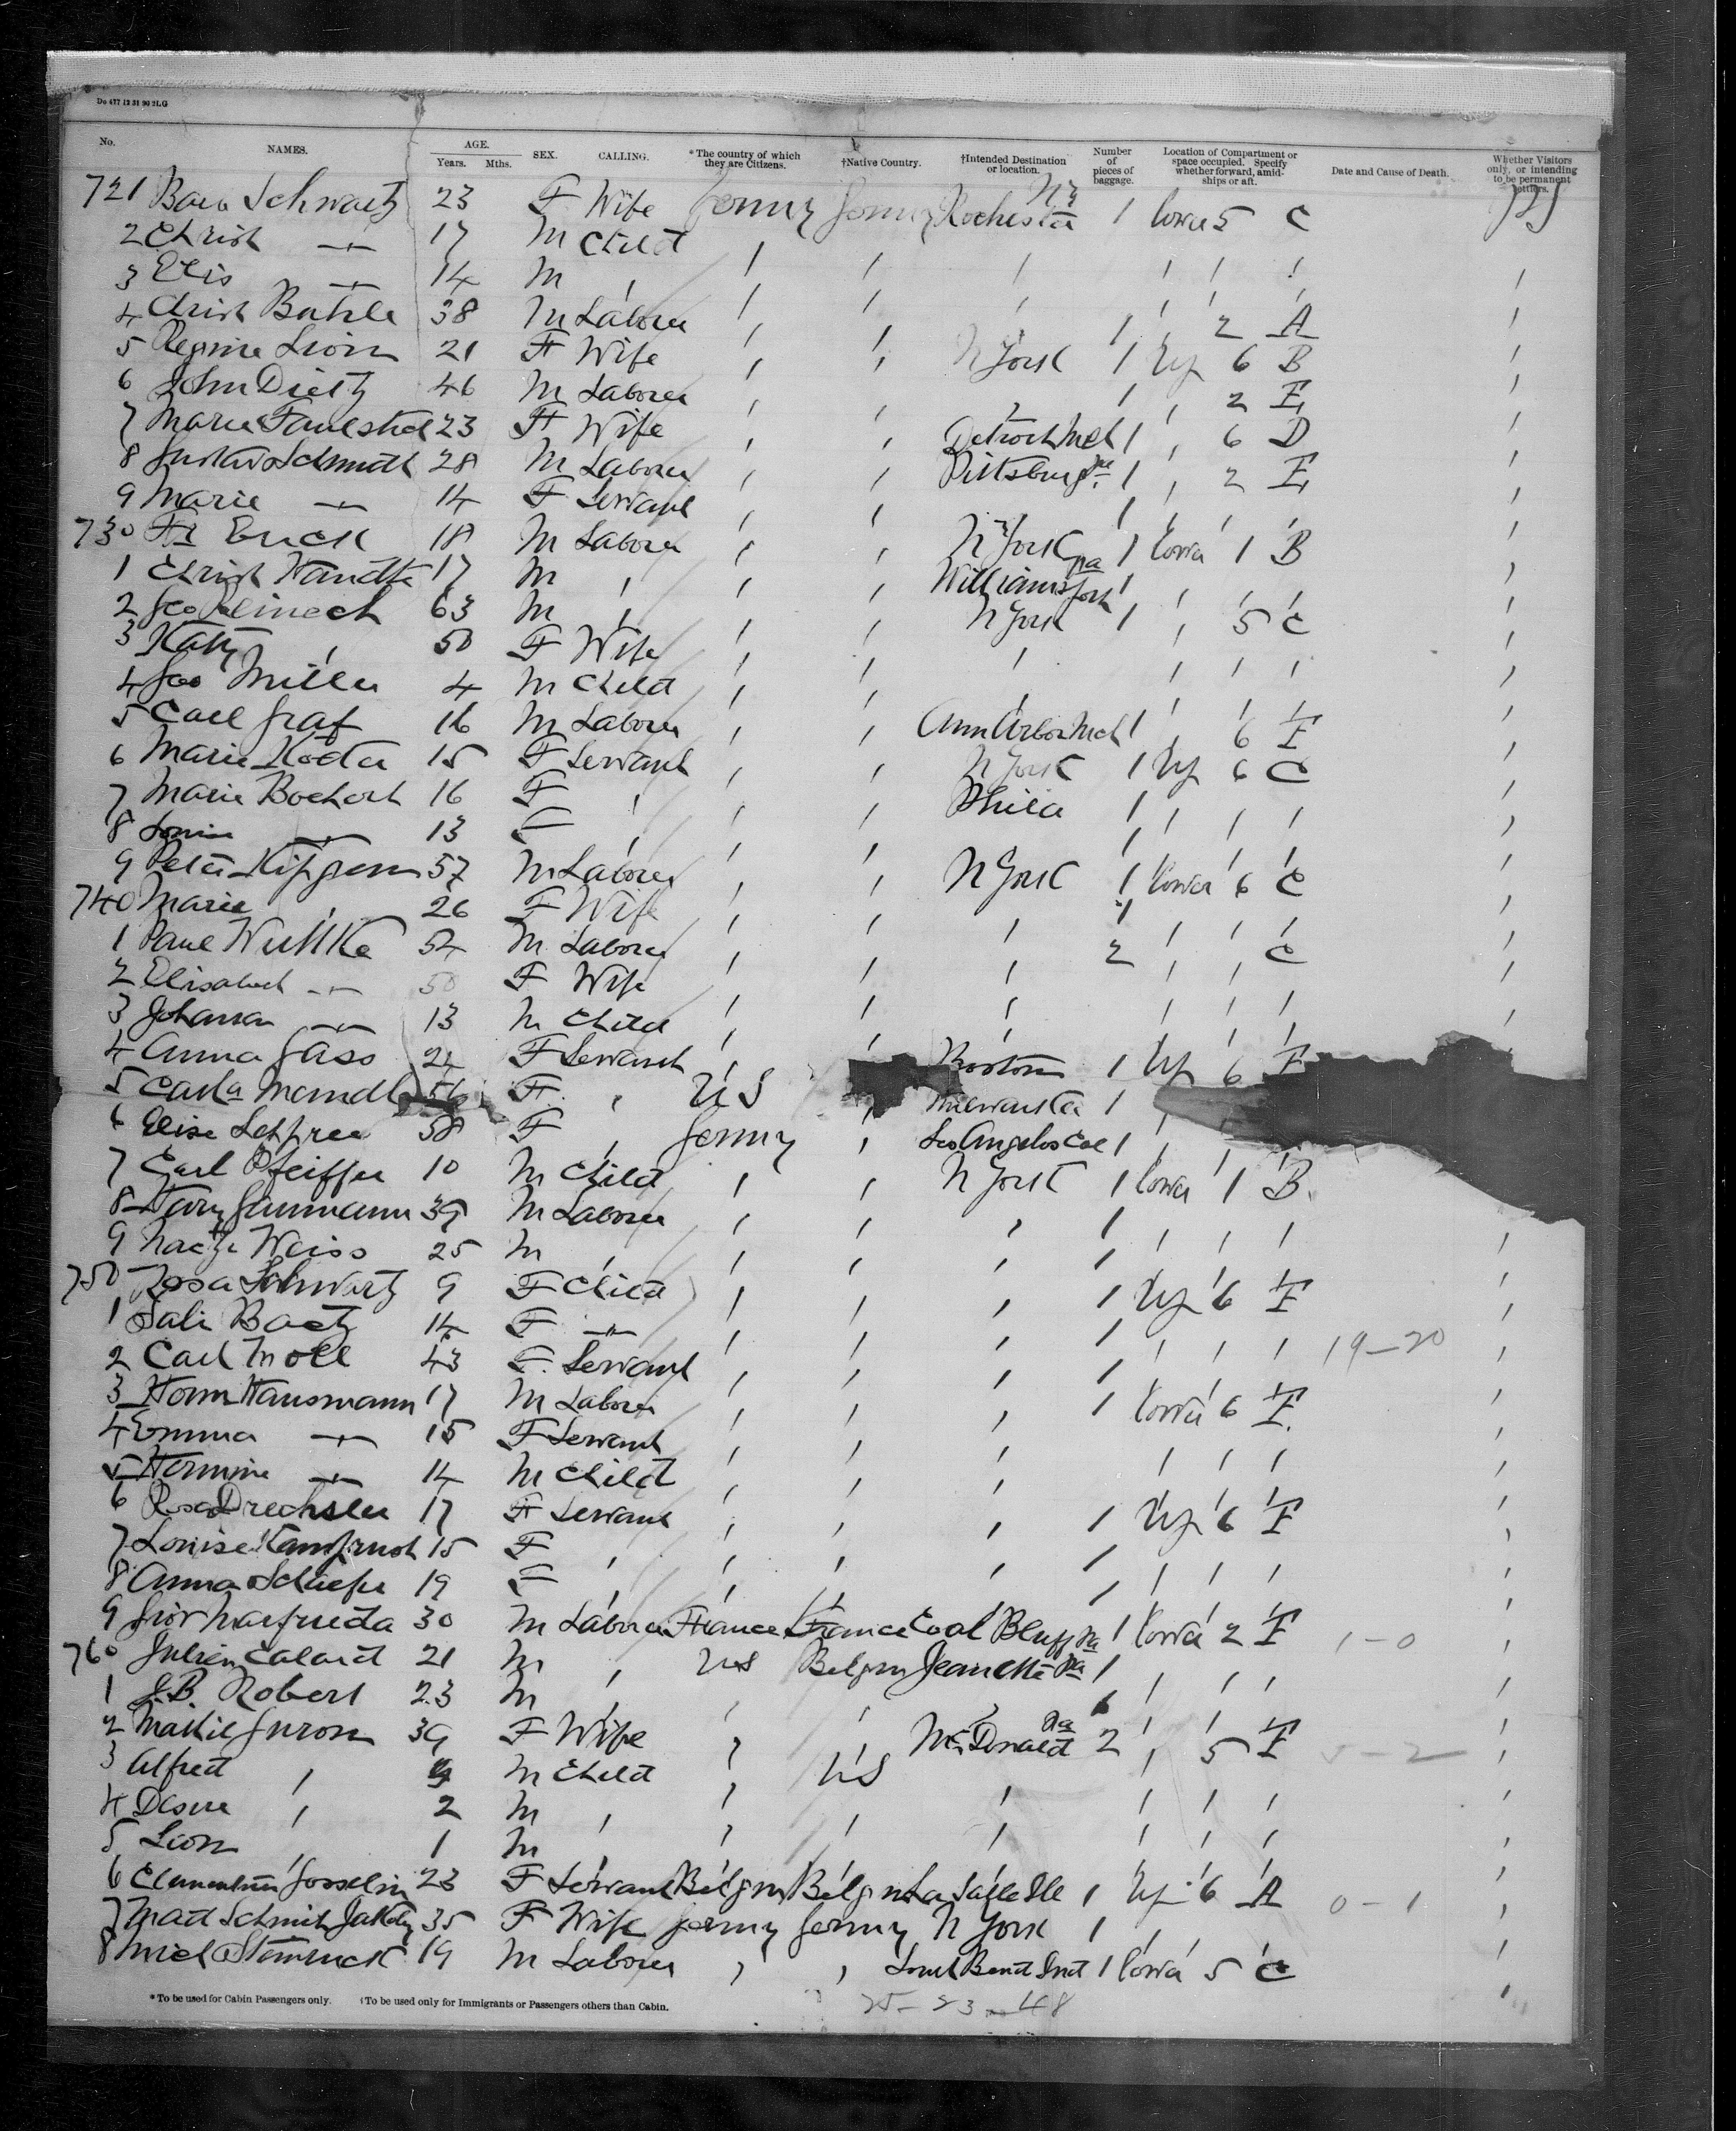 Do 477 12 31 90 2LG
No. NAMES. AGE. Years. Mths. SEX. CALLING. *The country of which they are Citizens. †Native Country. †Intended Destination or location. Number of pieces of baggage. Location of Compartment or space occupied. Specify whether forward, amidships or aft. Date and Cause of Death. Whether Visitors only, or intending to be permanent settlers.
721 Schwartz 23 F Wife Germy Germy Rochester NY 1 lower 5 C
2 Christ -"- 17 M Child ' ' ' ' ' ' '
3 -"- 14 M ' ' ' ' ' ' ' '
4 Christ 38 M Laborer ' ' ' 1 ' 2 A '
5 Regina Lion 21 F Wife ' ' N York 1 Up 6 B '
6 John Dietz 46 M Laborer ' ' ' 1 ' 2 E '
7 Marie 23 F Wife ' ' Detroit Mch 1 ' 6 D '
8 Gustav Schmidt 28 M Laborer ' ' Pittsburg Pa 1 ' 2 E '
9 Marie -"- 14 F Servant ' ' ' 1 ' ' ' '
730 Fr 18 M Laborer ' ' N York 1 lower 1 B '
1 Christ Wandtke 17 M ' ' ' Williamsport Pa 1 ' ' ' '
2 Geo Reinech 63 M ' ' ' N York 1 ' 5 C '
3 Kath ' 50 F Wife ' ' ' ' ' ' '
4 Geo Miller 4 M Child ' ' ' ' ' ' '
5 Carl Graf 16 M Laborer ' ' Ann Arbor Mch 1 ' 6 F '
6 Marie 15 F Servant ' ' N York 1 Up 6 C '
7 Marie 16 F ' ' ' Phila 1 ' ' ' '
8 Louise -"- 13 F ' ' ' ' 1 ' ' ' '
9 Peter 57 M Laborer ' ' N York 1 lower 6 C '
740 Marie ' 26 F Wife ' ' ' 1 ' ' ' '
1 Paul Wuttke 54 M Laborer ' ' ' 2 ' ' C '
2 Elisabeth -"- 50 F Wife ' ' ' ' ' ' '
3 Johanna -"- 13 M Child ' ' ' ' ' ' '
4 Anna Gass 24 F Servant ' ' Boston 1 Up 6 F
5 Carla 56 F ' U S Milwaukee 1
6 Elise 58 F ' Germy ' Los Angelos Cal 1
7 Carl Pfeiffer 10 M Child ' ' N York 1 lower 1 B
8 39 M Laborer ' ' ' 1 ' ' '
9 Weiss 25 M ' ' ' ' 1 ' ' ' '
750 Rosa Schwartz 9 F Child ' ' ' 1 Up 6 F '
1 Sali 14 F -"- ' ' ' 1 ' ' ' 19-20 '
2 Carl Moll 43 F Servant ' ' ' 1 ' ' ' '
3 Herm Hausmann 17 M Laborer ' ' ' 1 lower 6 F '
4 Emma -"- 15 F Servant ' ' ' ' ' ' '
5 Hermine -"- 14 M Child ' ' ' ' ' ' '
6 Rosa Drechsler 17 F Servant ' ' ' 1 Up 6 F '
7 Louise 15 F ' ' ' ' 1 ' ' ' '
8 Anna Schaefer 19 F ' ' ' ' 1 ' ' ' '
9 30 M Laborer France France Coal Bluff Pa 1 lower 2 F 1-0 '
760 Julien 21 M ' U S Belgm Jeanette Pa 1 ' ' ' '
1 J.B. Robert 23 M ' ' ' ' 1 ' ' ' '
2 39 F Wife ' ' McDonald Pa 2 ' 5 F 5-2 '
3 Alfred ' M Child ' U S ' ' ' ' '
4 ' 2 M ' ' ' ' ' ' ' '
5 Leon ' 1 M ' ' ' ' ' ' ' '
6 Clementine Gosselin 23 F Servant Belgm Belgm La Salle Ill 1 Up 6 A 0-1 '
7 35 F Wife Germy Germy N York 1 ' ' ' '
8 19 M Laborer ' ' South Bend Ind 1 lower 5 C '
*To be used for Cabin Passengers only. †To be used only for Immigrants or Passengers others than Cabin.
25-23-48